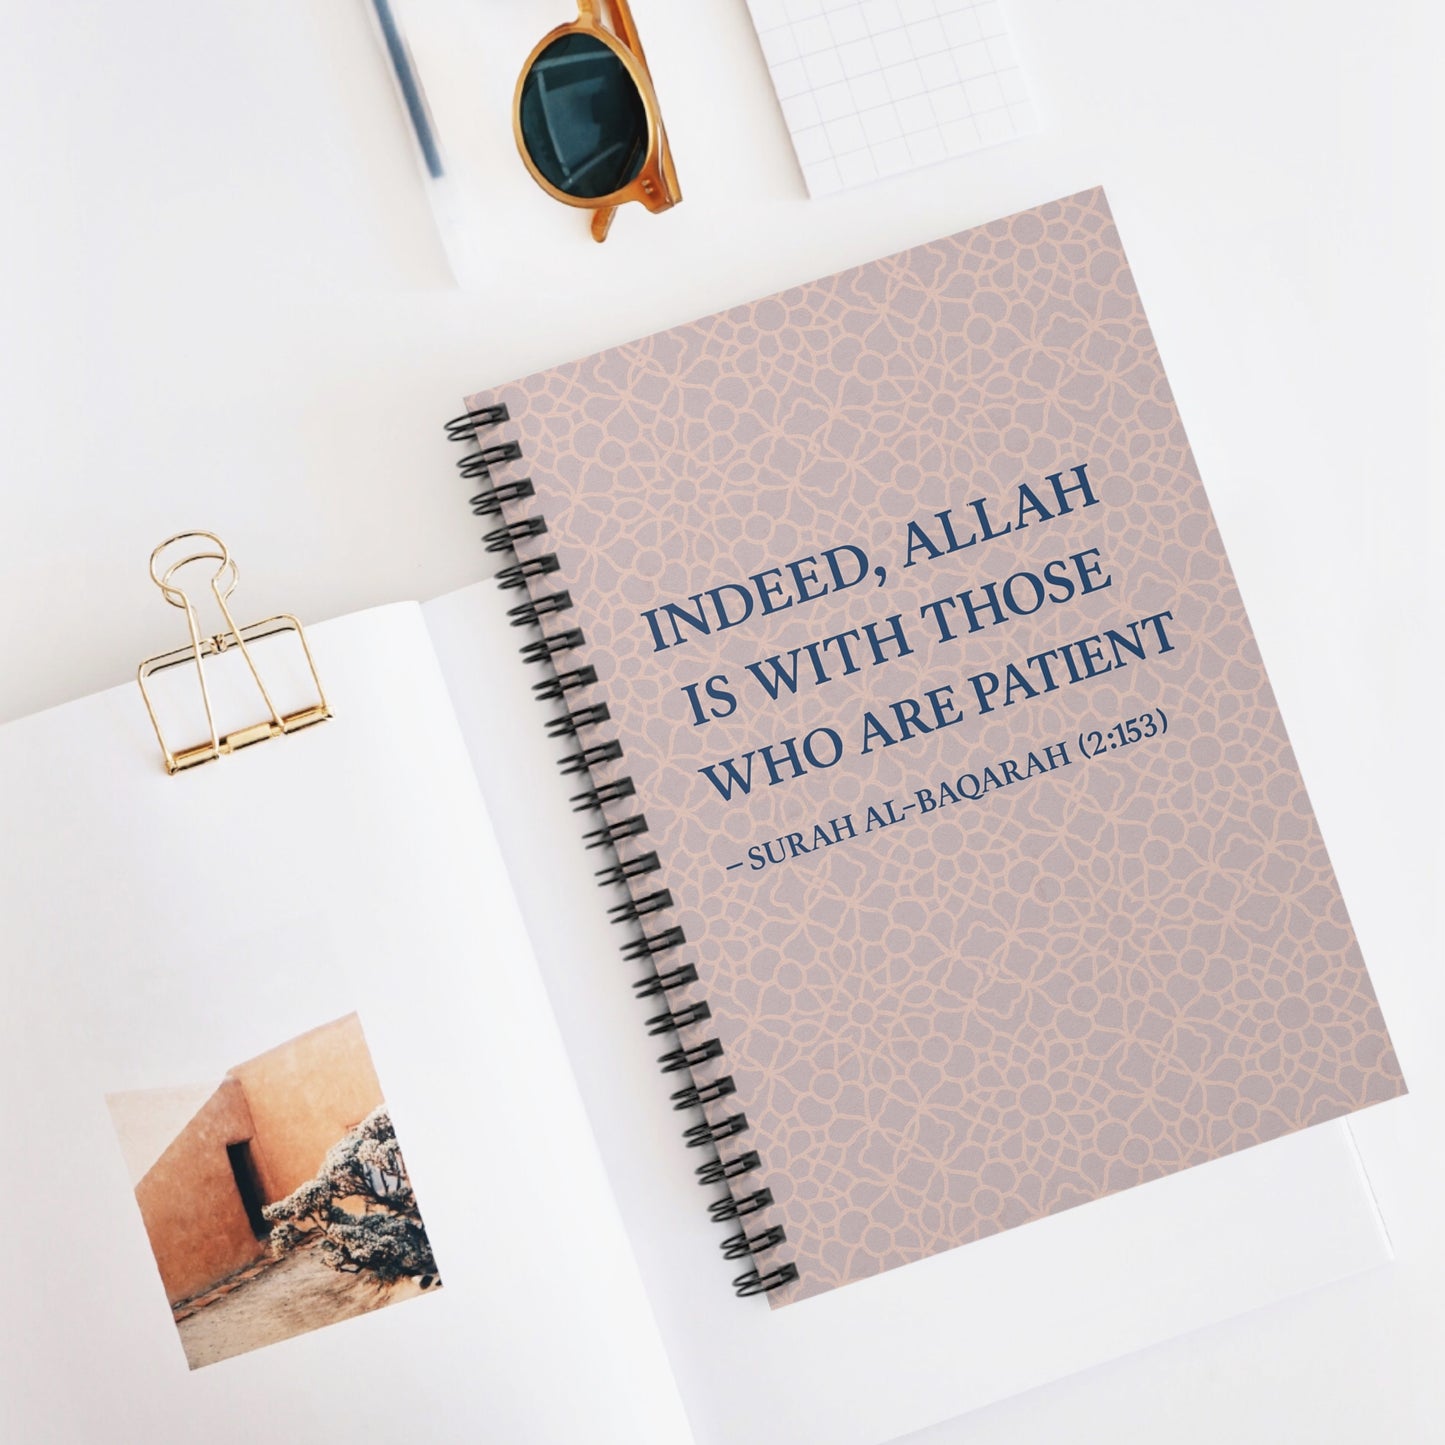 INDEED, ALLAH
IS WITH THOSE
WHO ARE PATIENT
– SURAH AL-BAQARAH (2:153)